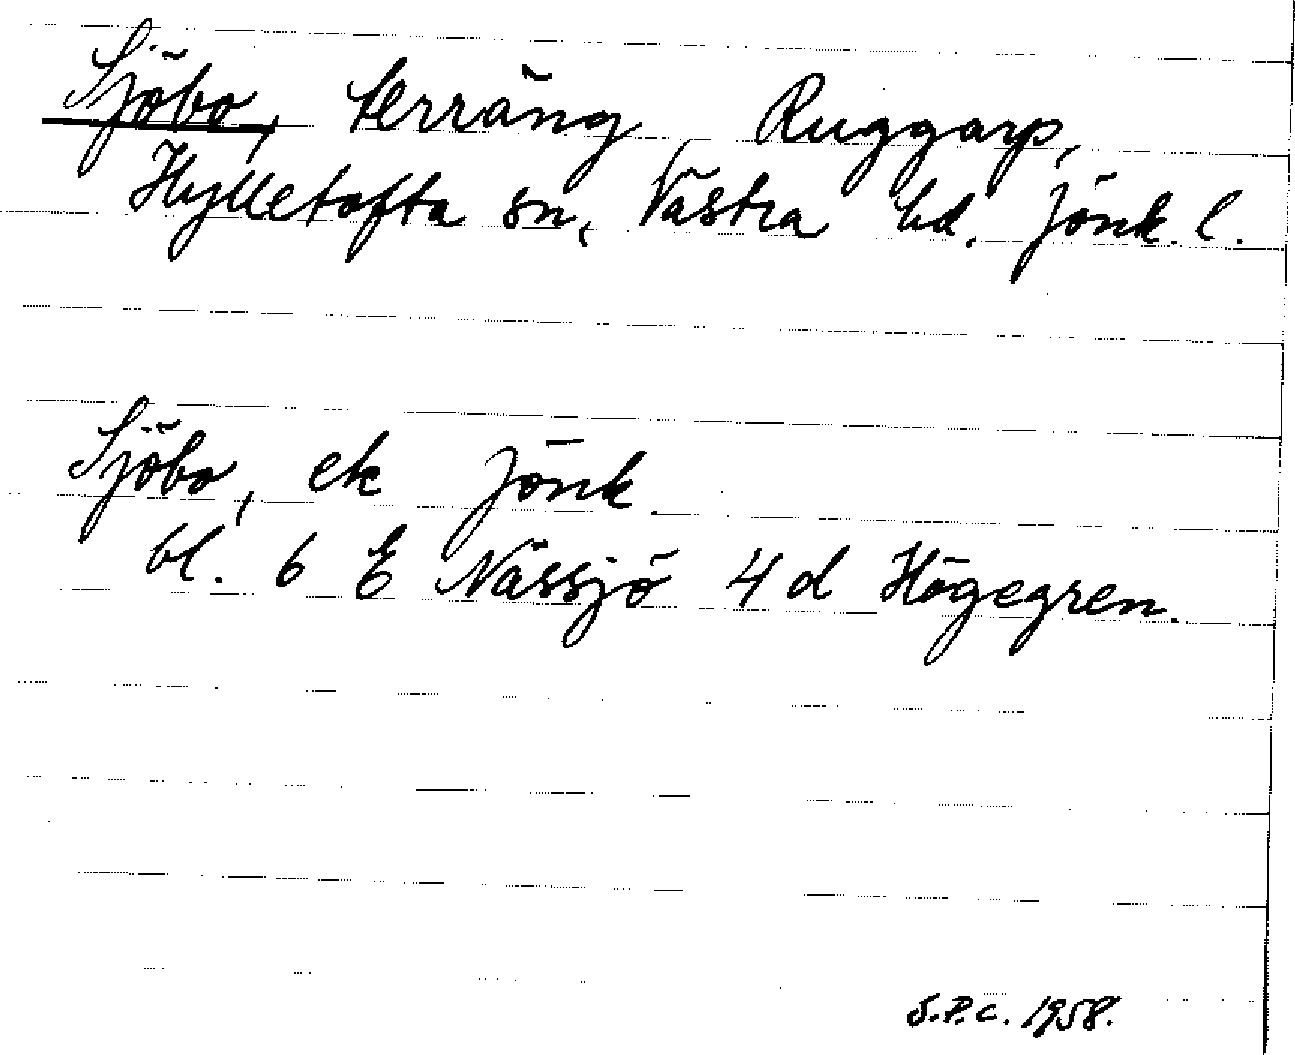 Sjöbo, terräng Ruggarp,
Hylletofta sn, Västra hd. Jönk. l.
Sjöbo, ek Jönk
bl. 6 E Nässjö 4 d Högegren.
S.P.C. 1958.